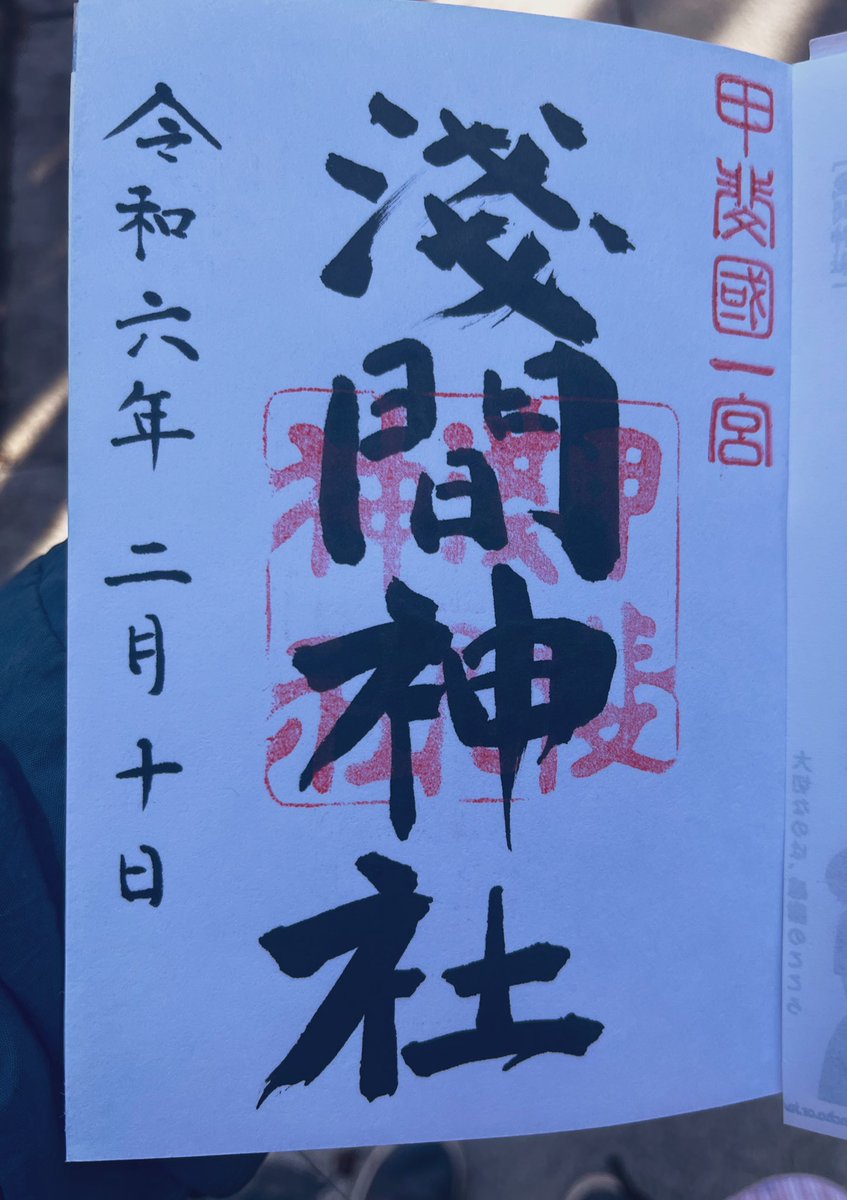 甲斐國一宮
淺間神社
令和六年 二月十日